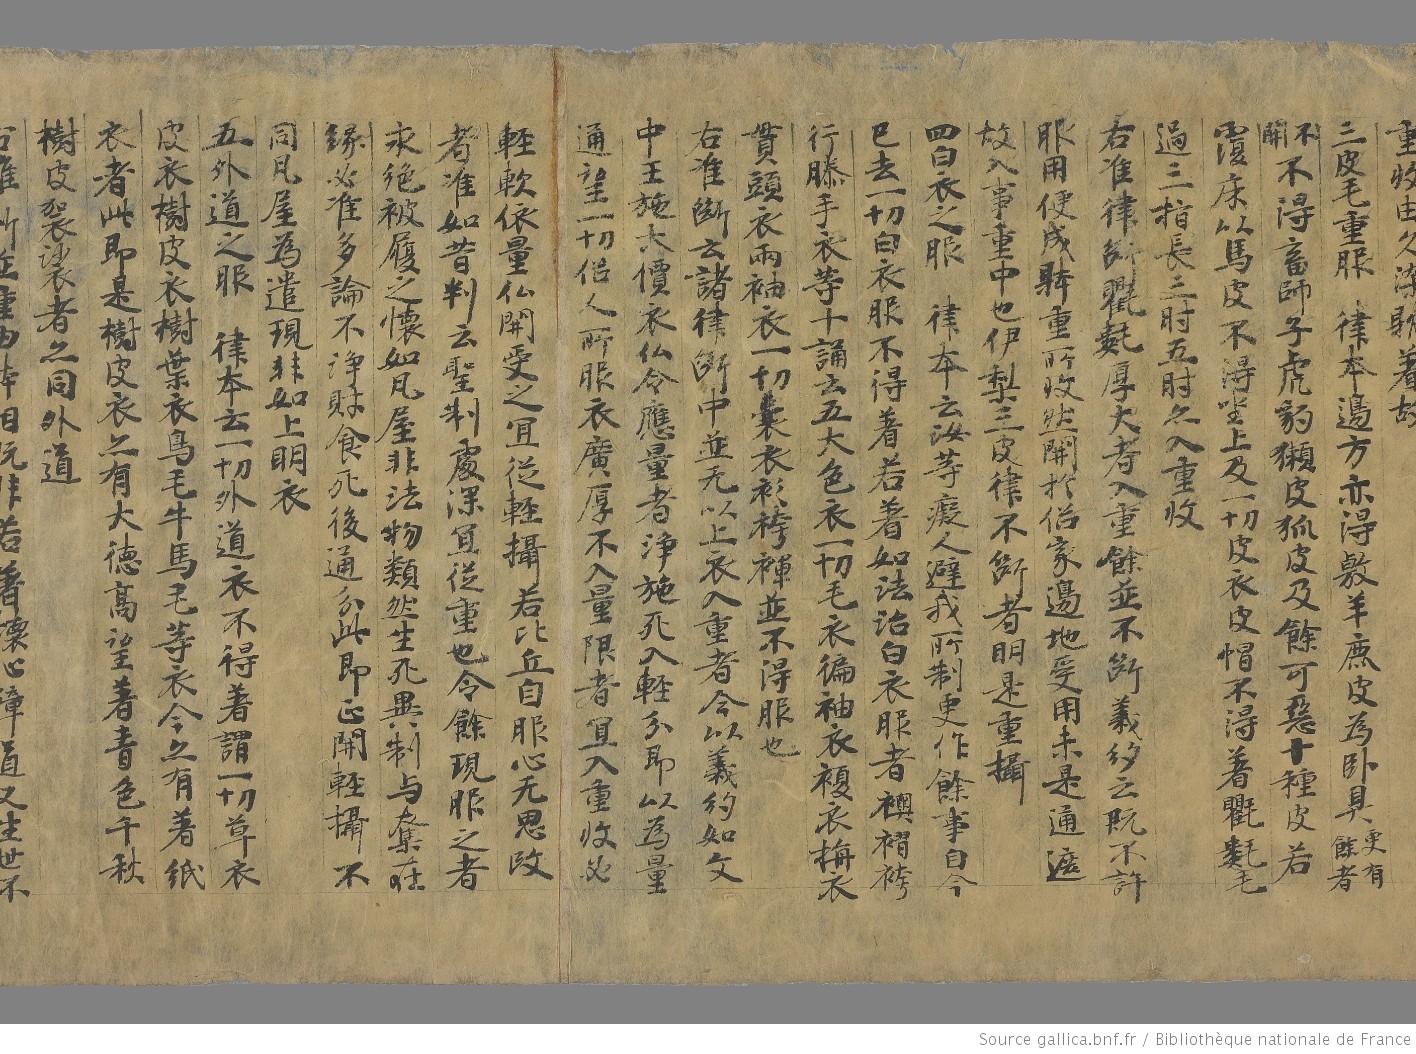 重收由久染肬著故
三皮毛重服　律本邊方亦得敷羊鹿皮為卧具更有餘者
不開不得畜師子虎豹獺皮狐皮及餘可惡十種皮若
覆床以馬皮不得坐上及一切皮衣皮帽不得著氍毹毛
過三指長三肘五肘亦入重收
右准律断氍毹厚大者入重餘並不断義約云既不許
服用便成躰重所收然開於侶家邊地受用未是通遮
故入事重中也伊梨三皮律不断者明是重攝
四白衣之服　律本云汝等癡人避我所制更作餘事自今
已去一切白衣服不得著若著如法治白衣服者襖褶袴
行縢手衣等十誦云五大色衣一切毛衣褊袖衣複衣
貫頭衣兩袖衣一切囊衣衫袴褌並不得服也
右准断云諸律断中並无以上衣入重者今以義約如文
中王施大價衣仏令應量者淨施死入輕分即以為量
通望一切侶人所服衣廣厚不入量限者冝入重收必
輕軟依量仏開受之冝從輕攝若比丘自服心无思改
者准如昔判云聖制處深冝從重也令餘現服之者
永絶被履之懷如凡屋非法物類然生死異制与奪在
緣必准多論不淨財食死後通分此即正開輕攝不
同凡屋為遣現非如上明衣
五外道之服　律本云一切外道衣不得著謂一切草衣
皮衣樹皮衣樹葉衣鳥毛牛馬毛等衣今亦有著紙
衣者此即是樹皮衣亦有大德高望著青色千秋
樹皮袈裟者亦同外道